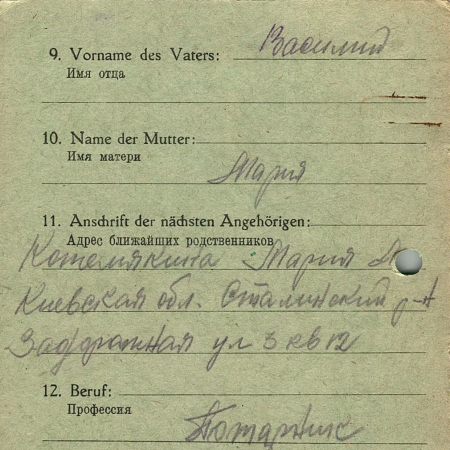 9. Vorname des Vaters: Василий
Имя отца
10. Name der Mutter:
Имя матери
Мария
11. Anschrift der nächsten Angehörigen:
Адрес ближайших родственников
Котемякина Мария
Киевская обл. Сталинский р-н
ул 3 кв 12
12. Beruf:
Профессия